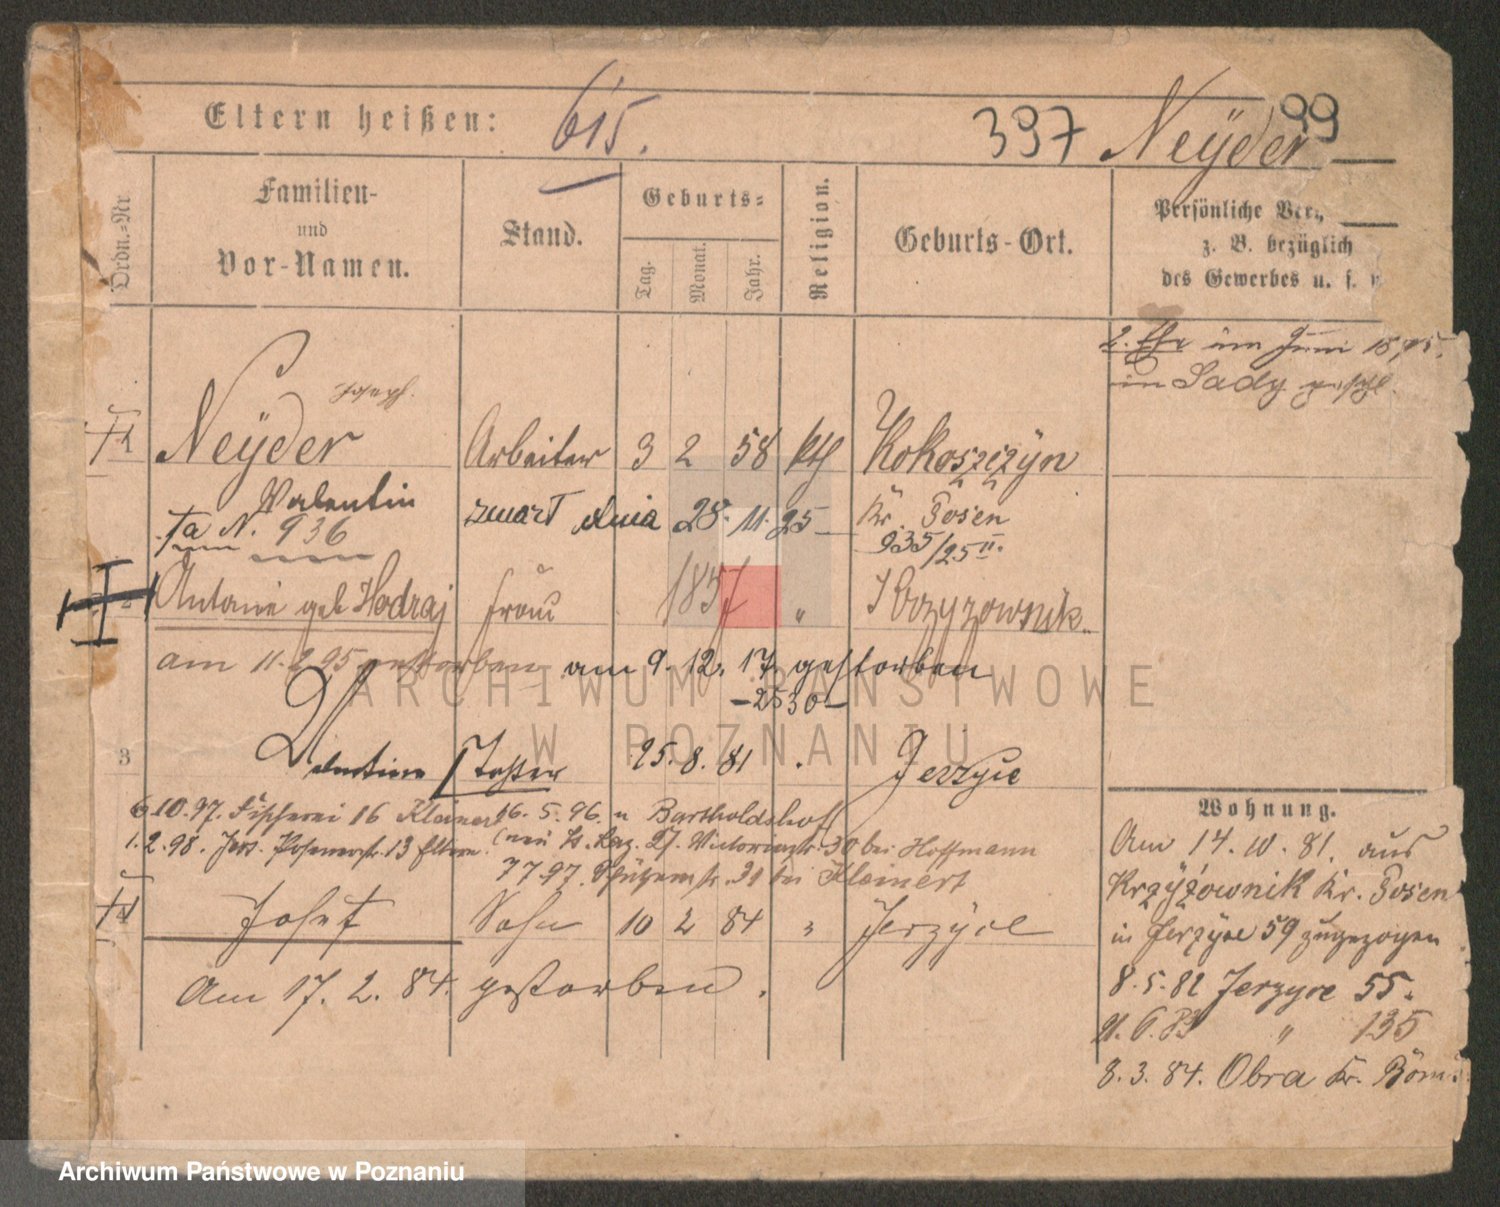 Eltern heißen:
615.
397
99
Neÿder
Ordn.-Nr.
Familien-
und
Vor-Namen.
Stand.
Geburts-
Tag.
Monat.
Jahr.
Religion.
Geburts-Ort.
Persönliche Ver
z. B. bezüglich
des Gewerbes u. s.
2. Ehe im Juni 1895
in Sady
Joseph.
1 Neÿder Arbeiter 3 2 58 kth Kokoszczÿn
Valentin zmarł dnia 28. 11. 25 Kr. Posen
N. 936 935/25 II.
2 Antonie geb Hodraj Frau 1857 " Krzyzownik
am 11. 2. 95 gestorben am 9. 12. 17 gestorben
-2530-
3 Valentine Tochter 25. 8. 81 Jerzyce
6.10.97. Fischerei 16 Kleinert 16. 5. 96. n Bartholdshof
1.2.98. Jers. Posenerstr. 13 Eltern. St. Laz. Victoriastr. 30 bei Hoffmann
7 7 97. Schützenstr. 31 bei Kleinert
4 Josef Sohn 10 2 84 " Jerzÿce
Am 17. 2. 84. gestorben.
Wohnung.
Am 14. 10. 81. aus
Krzÿżownik Kr. Posen
in Jerzÿce 59 zugezogen
8. 5. 82 Jerzyce 55.
21. 6. 83 " 135
8. 3. 84. Obra Kr. Bom
ARCHIWUM PAŃSTWOWE
W POZNANIU
Archiwum Państwowe w Poznaniu